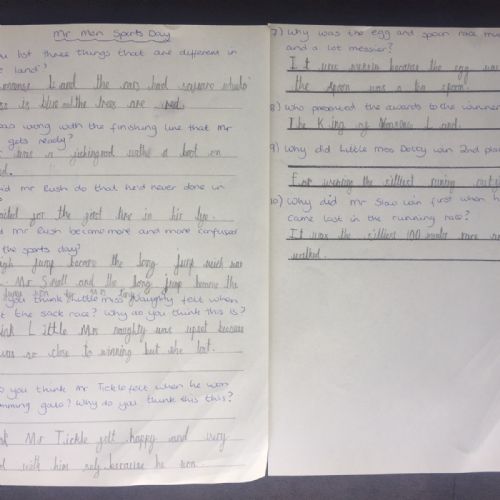 Mr Men Sports Day
you list three things that are different in
land?
and the cars had square wheels
is blue and the trees are red.
was wrong with the finishing line that Mr
gets ready?
was a with a boot on
did Mr Rush do that he'd never done in
for the first time in his life.
did Mr Rush become more and more confused
the sports day?
high jump became the long jump wich was
Mr Small and the long jump became the
you think Little Miss Naughty felt when
the sack race? Why do you think this is?
think Little Miss naughty was upset because
was so close to winning but she lost.
do you think Mr Tickle felt when he won
swimming gala? Why do you think this this?
Mr Tickle felt happy and very
with him self because he won.
7) Why was the egg and spoon race
and a lot messier?
It was because the egg was
the spoon was a tea spoon.
8) Who presented the awards to the winners
The King of Nonsense Land.
9) Why did Little Miss Dotty win 2nd place
For wearing the silliest runing
10) Why did Mr Slow win first when he
came last in the running race?
It was the silliest 100 race
walked.